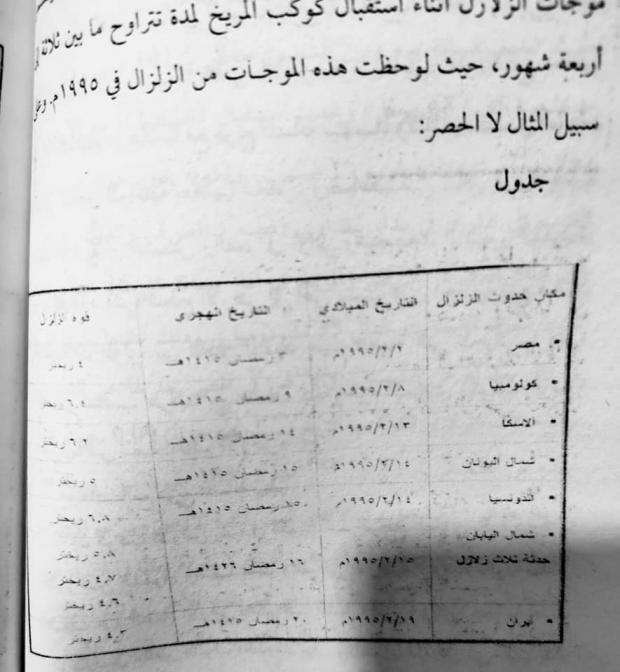 موجات الزلازل أثناء استقبال كوكب المريخ لمدة تتراوح ما بين ثلاثة
أربعة شهور، حيث لوحظت هذه الموجـات من الزلزال في ١٩٩٥م. وعلى
سبيل المثال لا الحصر:
جدول
مكان حدوث الزلزال التاريخ الميلادي التاريخ الهجري قوة الزلزال
• مصر ١٩٩٥/٢/٢م ٣ رمضان ١٤١٥هـ ٤ ريختر
• كولومبيا ١٩٩٥/٢/٨م ٩ رمضان ١٤١٥هـ ٦,٤ ريختر
• الاسكا ١٩٩٥/٢/١٣م ١٤ رمضان ١٤١٥هـ ٦,٢ ريختر
• شمال اليونان ١٩٩٥/٢/١٤م ١٥ رمضان ١٤١٥هـ ٥ ريختر
• اندونسيا ١٩٩٥/٢/١٤م ١٥ رمضان ١٤١٥هـ ٦,٨ ريختر
• شمال اليابان ٥,٨ ريختر
حدثة ثلاث زلازل ١٩٩٥/٢/١٥م ١٦ رمضان ١٤٢٦هـ ٤,٧ ريختر
٤,٦ ريختر
• ايران ١٩٩٥/٢/١٩م ٢٠ رمضان ١٤١٥هـ ٤,٣ ريختر